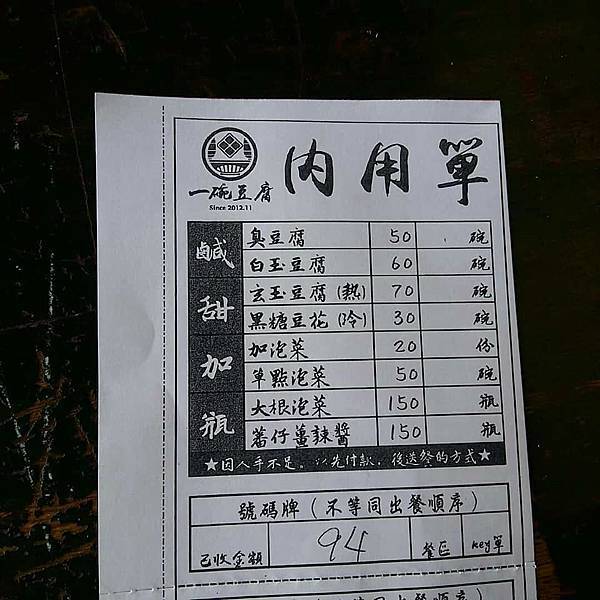 內用單
一碗豆腐
Since 2012.11
鹹
臭豆腐 50 碗
白玉豆腐 60 碗
甜
玄玉豆腐(熱) 70 碗
黑糖豆花(冷) 30 碗
加
加泡菜 20 份
單點泡菜 50 碗
瓶
大根泡菜 150 瓶
蕃仔薑辣醬 150 瓶
★因人手不足，以先付款，後送餐的方式★
號碼牌(不等同出餐順序)
已收金額 94 餐區 key單
不等同出餐順序)